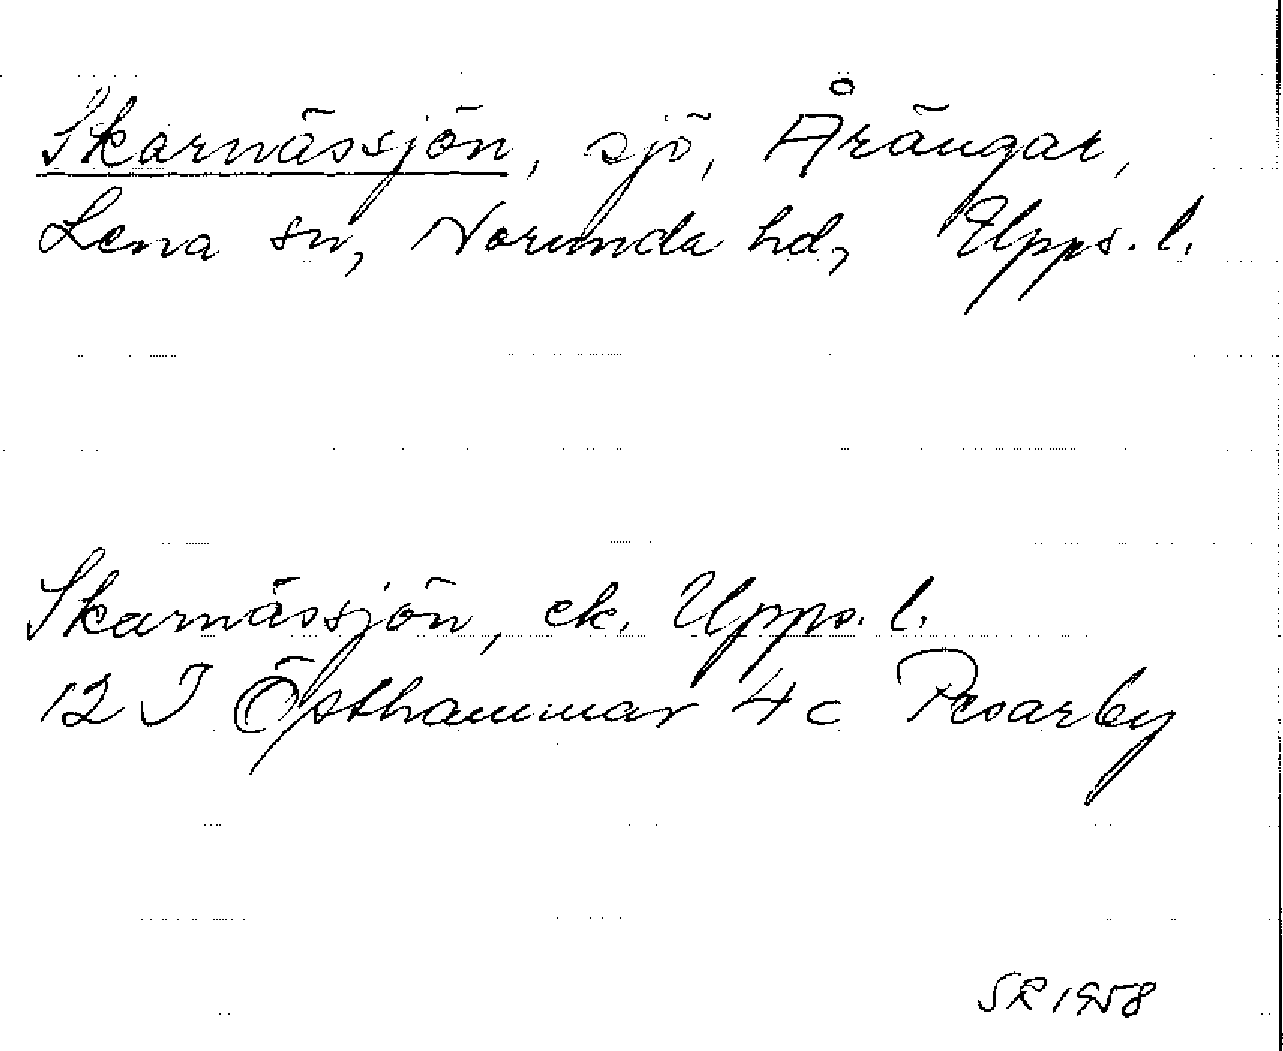 Skarnässjön, sjö, Årängar,
Lena sn, Norunda hd, Upps. l.
Skarnässjön, ek. Upps. l.
12 I Östhammar 4 c Pesarby
SR 1958